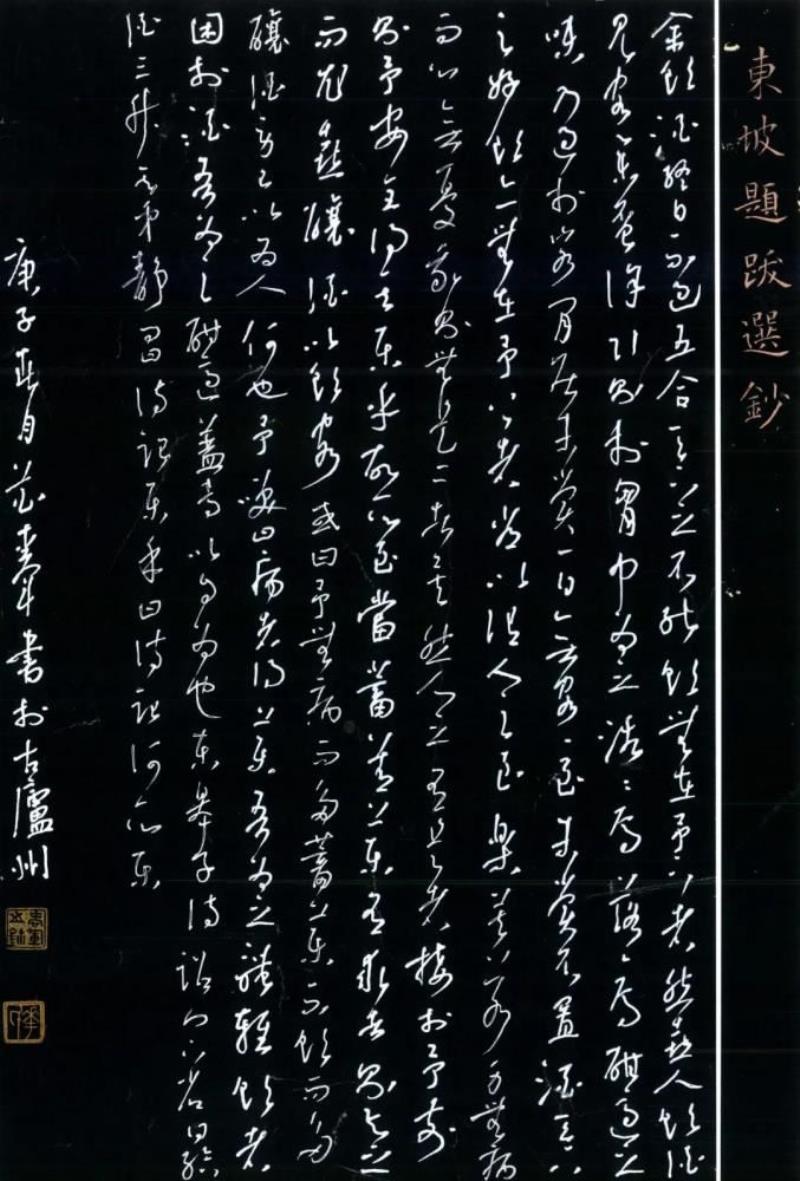 東坡題跋選鈔
余飲酒終日不過五合天下之不能飲無在予下者然喜人飲酒
見客舉盃徐引則於胸中為之浩〻焉落〻焉酣適之
味乃過於客閒居未嘗一日無客〻至未嘗不置酒天下
之好飲亦無在予上者常以謂人之至樂莫若身無病
而心無憂我則無是二者矣然人之有是者接於予前
則予安全得其樂乎故所至當蓄善藥有求者則與之
而尤喜釀酒以飲客或曰子無病而多蓄藥不飲而多
釀酒勞己以為人何也予笑曰病者得藥吾為之體輕飲者
困於酒吾為之酣適蓋專以自為也東皋子待詔門下省日給
酒三升其弟靜問待詔樂乎曰待詔何所樂
庚子春月書於古廬州